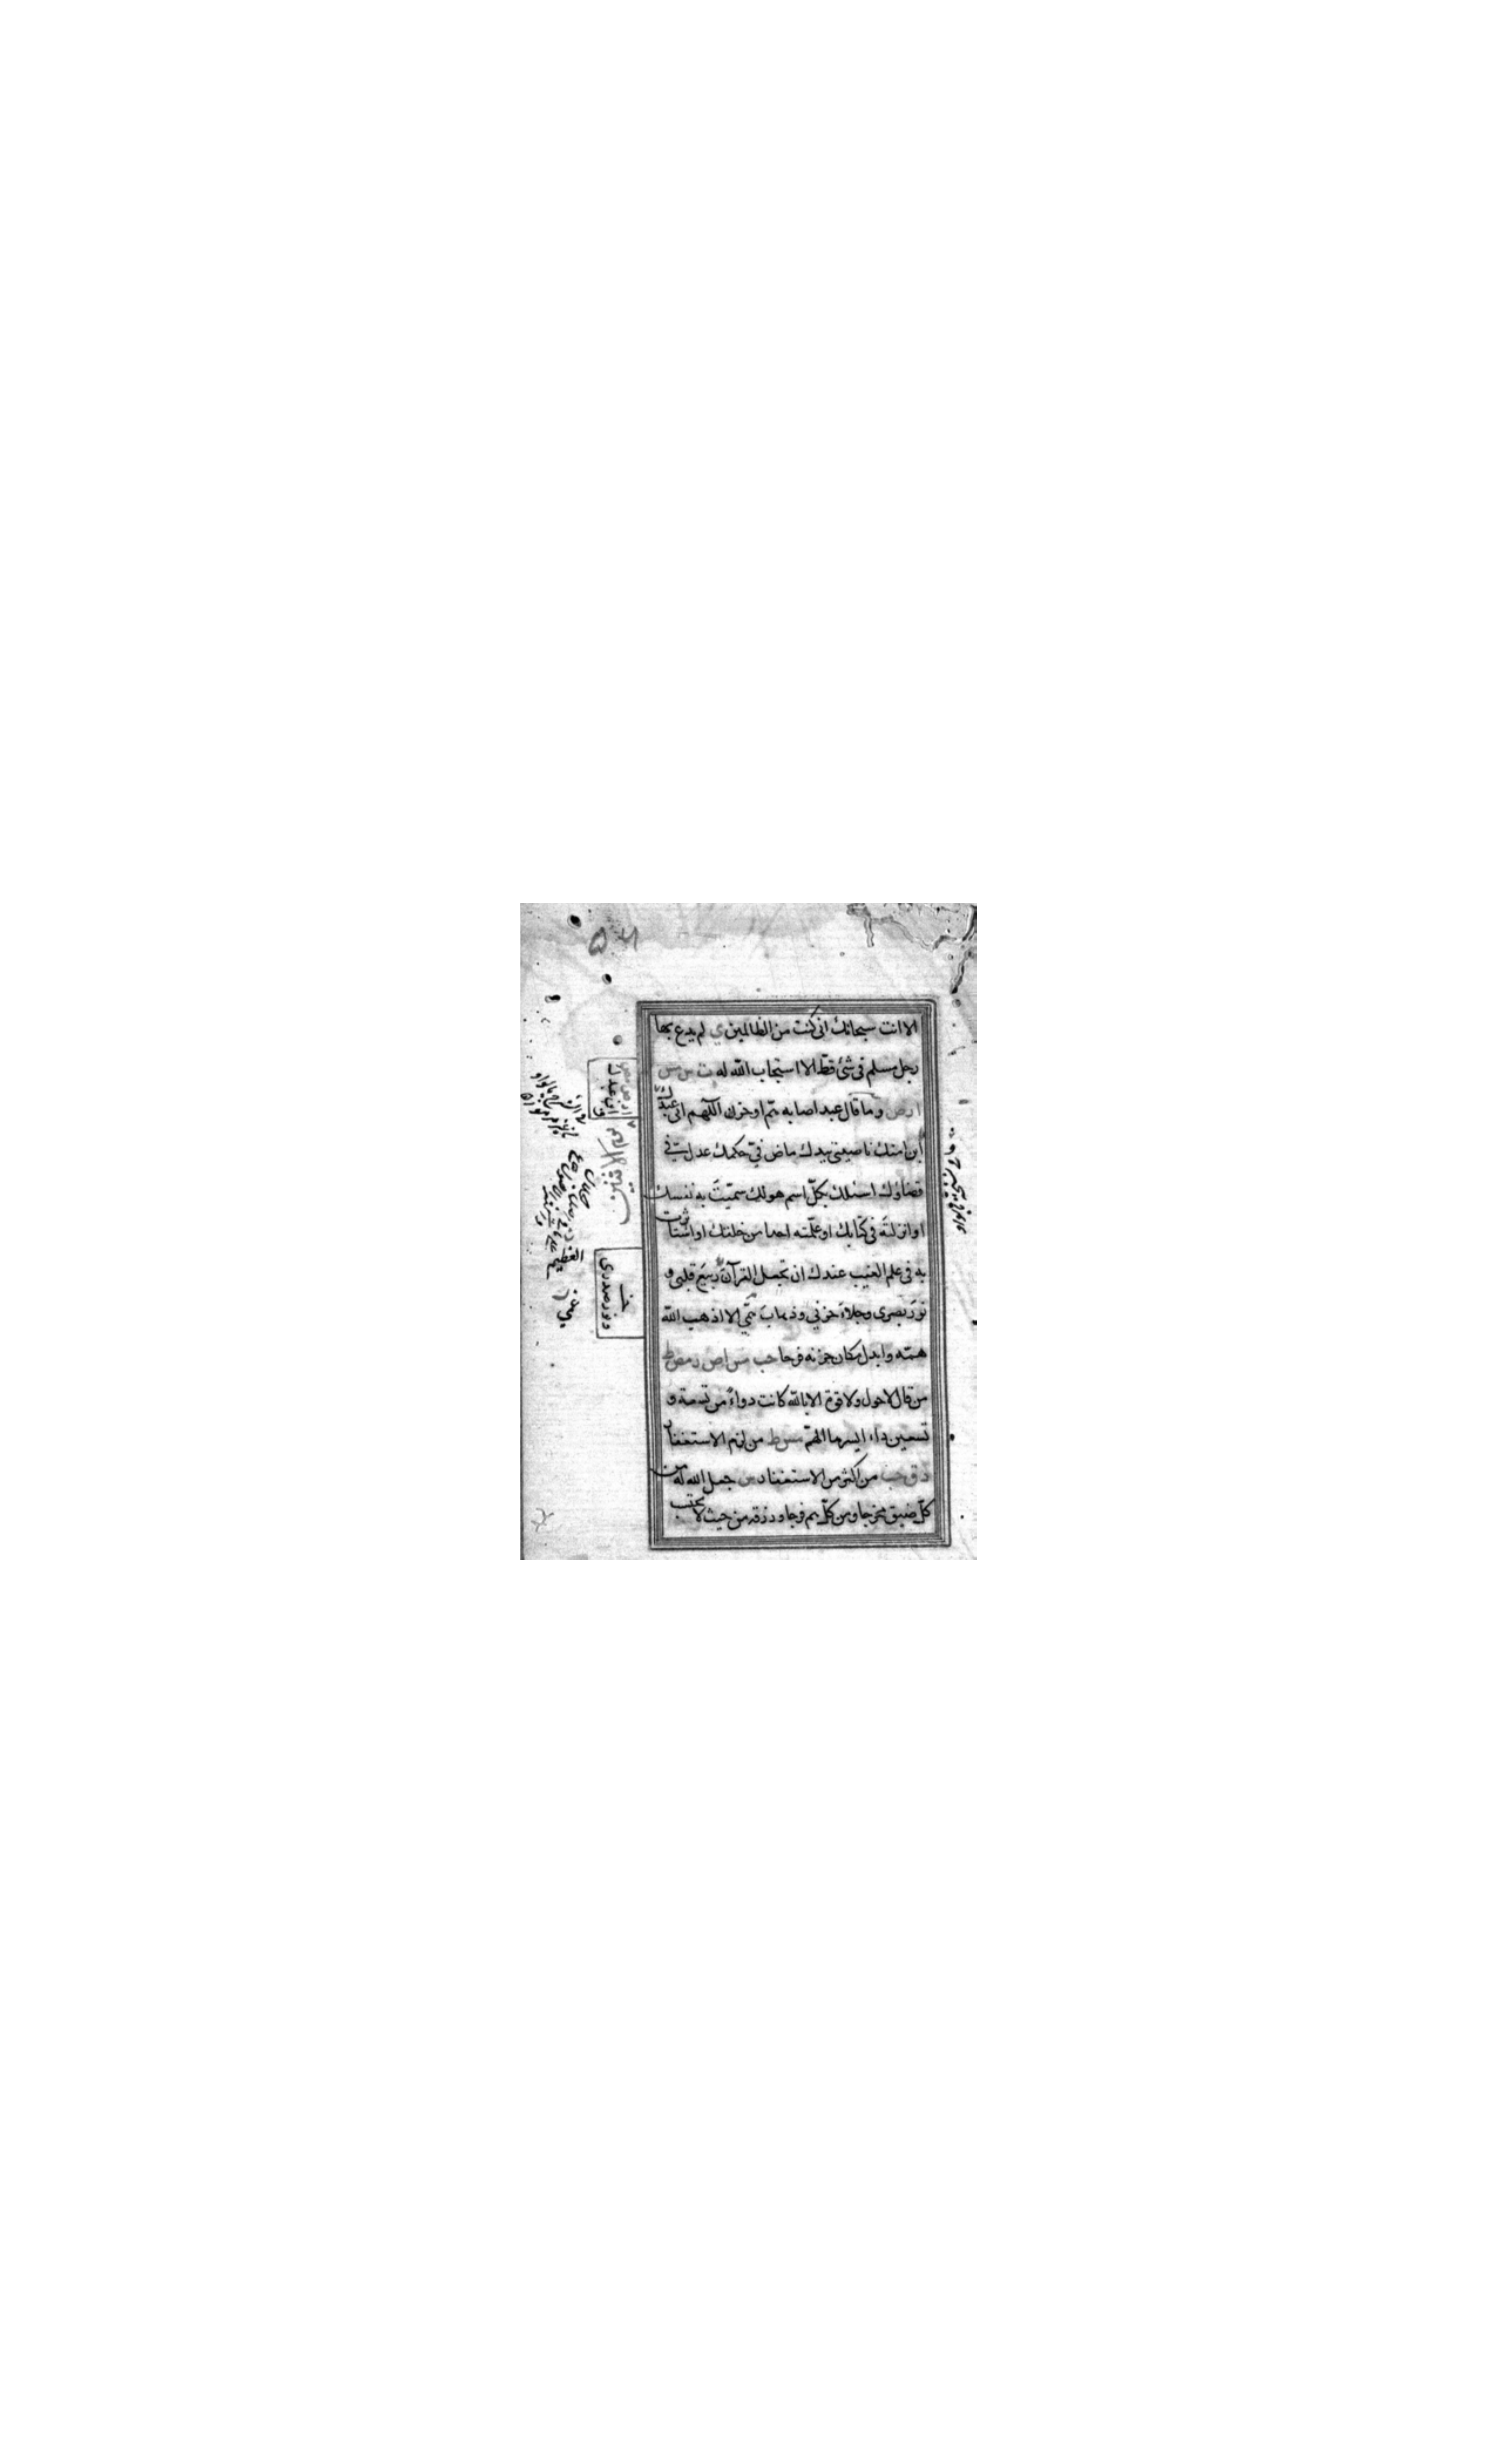 الا انت سبحانك انى كنت من الظالمين ي لم يدع بها
رجل مسلم فى شئ قط الا استجاب الله له ت س مس
ا ر ص وما قال عبد اصابه همّ او حزن اللّهم انى عبدك
ابن امتك ناصيتى بيدك ماض فىّ حكمك عدل فىّ
قضاؤك اسئلك بكلّ اسم هو لك سمّيتَ به نفسك
او انزلته فى كتابك او علّمته احدا من خلقك او استأثرت
به فى علم الغيب عندك ان تجعل القرآن ربيع قلبى و
نورَ بصرى وجلاءَ حزنى وذهابَ همّى الا اذهب الله
همّه وابدل مكان حزنه فرحا حب مس ا ص ر مص ط
من قال لاحول ولا قوة الا بالله كانت دواءً من تسعة و
تسعين داء ايسرها الهمّ مس ط من لزم الاستغفار
د ق حب من اكثر من الاستغفار س جعل الله له من
كلّ ضيق مخرجا ومن كلّ هم فرجا ورزقه من حيث لا يحتسب
ا ر ص مص
وابن عبدك
حب
ونور صدرى
العظيم